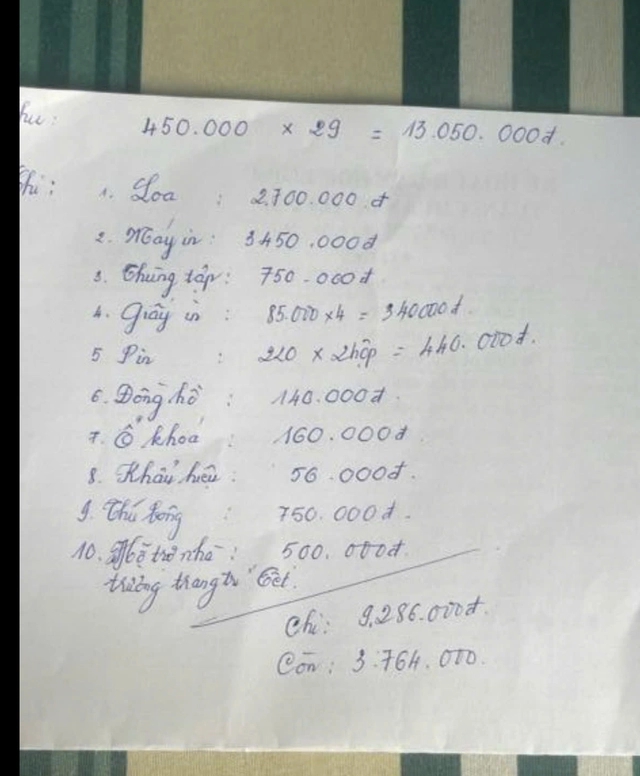 Thu: 450.000 × 29 = 13.050.000đ.
Chi: 1. Loa : 2.700.000đ
2. Máy in: 3450.000đ
3. Thùng tập: 750.000đ
4. Giấy in : 85.000×4 = 340000đ.
5 Pin : 220 × 2hộp = 440.000đ.
6. Đồng hồ : 140.000đ.
7. Ổ khoá : 160.000đ.
8. Khẩu hiệu: 56.000đ.
9. Thú bông : 750.000đ.
10. Hỗ trợ nhà : 500.000đ.
trường trang trí Tết.
Chi: 9.286.000đ.
Còn: 3.764.000.